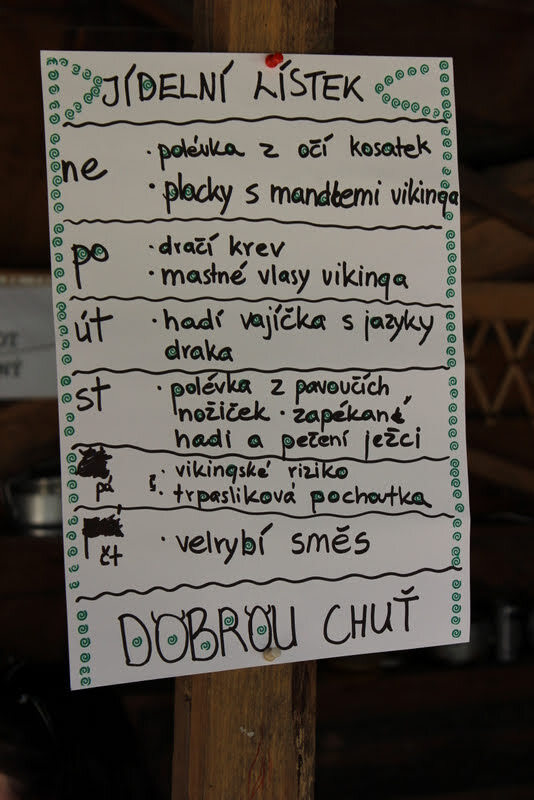 JÍDELNÍ LÍSTEK
ne
· polévka z očí kosatek
· placky s mandlemi vikinga
po
· dračí krev
· mastné vlasy vikinga
út
· hadí vajíčka s jazyky
draka
st
· polévka z pavoučích
nožiček · zapékané
hadi a pečení ježci
pá
· vikingské riziko
· trpaslíková pochoutka
čt
· velrybí směs
DOBROU CHUŤ